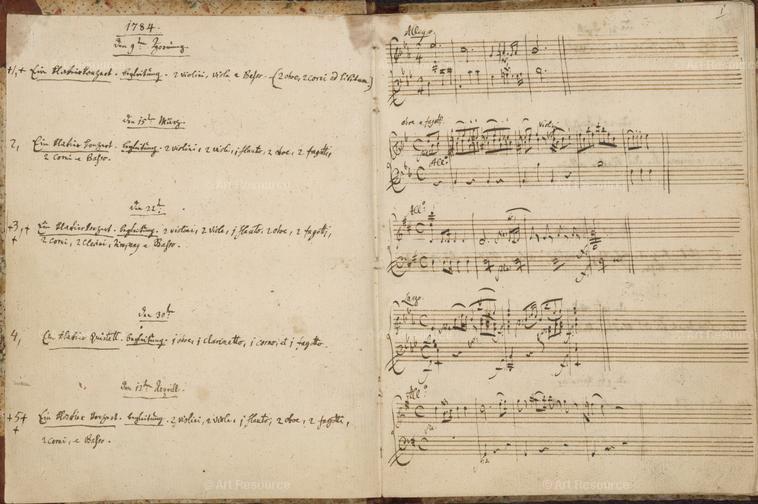 1784.
den 9:ten Hornung.
+1,+ Ein Klavierkonzert. begleitung. 2 violini, viola e Baßo. (2 oboe, 2 corni ad libitum)
den 15:ten März.
2, Ein klavier konzert. begleitung. 2 violini, 2 viole, j flauto, 2 oboe, 2 fagotti,
2 corni e Baßo.
den 22:t
+3,+ Ein klavierkonzert. begleitung. 2 violini, 2 viole, j flauto. 2 oboe, 2 fagotti,
+ 2 corni, 2 clarini, timpany e Baßo.
den 30:t
4, Ein klavier Quintett. begleitung. j oboe, j clarinetto, j corno, et j fagotto.
den 12:ten April.
+5+ Ein klavier konzert. begleitung. 2 violini, 2 viole, j flauto, 2 oboe, 2 fagotti,
+ 2 corni, e Baßo.
1
Allegro
oboe e fagotti.
violini
All:o
All:o
Largo
All:o
© Art Resource
© Art Resource
© Art Resource
© Art Resource